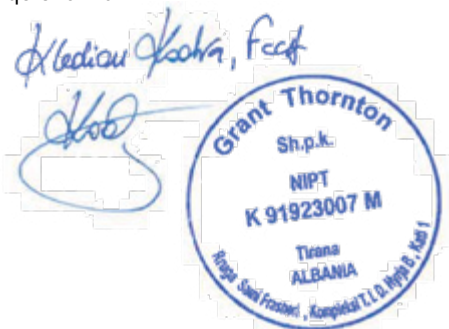 Kledian Kodra, Fcca
Grant Thornton
Sh.p.k.
NIPT
K 91923007 M
Tirana
ALBANIA
Rruga Sami Frasheri , Kompleksi T.I.D. Hyrja B , Kati 1